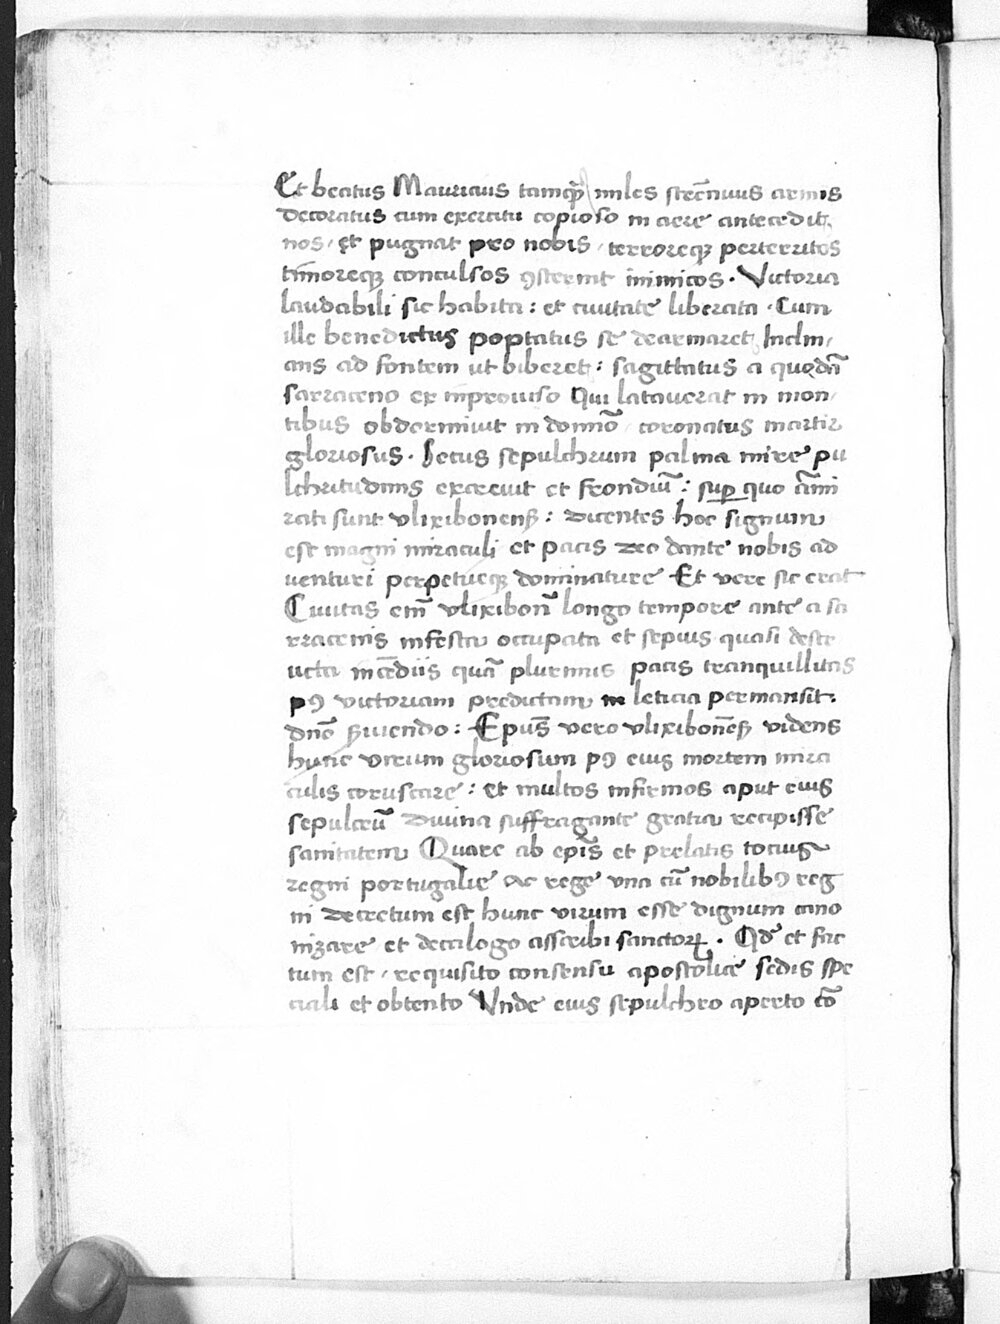 Et beatus Mauricius tamqȝ miles stre̅nuus armis
decoratus cum exercitu copioso in aere antecedit
nos / et pugnat pro nobis / terroreqȝ perterritos
timoreqȝ conculsos ꝯsternit inimicos . Victoria
laudabili sic habita : et ciuitate liberata . Cum
ille benedictus poptatus se dearmaret Inclin/
ans ad fontem ut biberet : sagittatus a quodā
sarraceno ex inprouiso Qui latauerat in mon/
tibus obdormiuit in domīo / coronatus martir
gloriosus . sepulchrum palma mire pu
lchritudinis excreuit et frondiū : suꝑ quo āmi
rati sunt vlixibonenſ : dicentes hoc signum
est magni miraculi et pacis deo dante nobis ad
uenturi perpetueqȝ dominature Et vere sic erat
Ciuitas em̄ vlixibon̄ longo tempore ante a sa
rracenis infesta occupata et sepius quasi destr
ucta incēdiis quā plurimis pacis tranquillitas
pꝰ victoriam predictam in leticia permansit .
dn̄o : Ep̄us vero vlixibone̅ſ videns
hunc virum gloriosum pꝰ eius mortem mira
culis coruscare : et multos infirmos aput eius
sepulcrū diuina suffragante gratia recipisse
sanitatem Quare ab ep̄is et prelatis tocius
regni portugalie ac rege vna cū nobilibꝰ reg
ni decretum est hunc virum esse dignum cano
nizare et decalogo asscribi sanctorꝝ . Qd̄ et fac
tum est / requisito consensu apostolice sedis spe
ciali et obtento Vnde eius sepulchro aperto cō